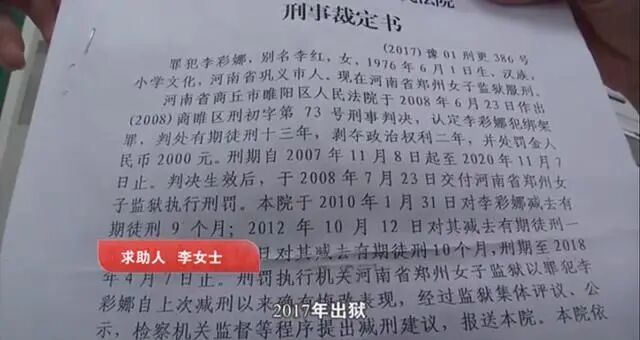 民法院
刑事裁定书
(2017)豫01刑更386号
罪犯李彩娜,别名李红,女,1976年6月1日生,汉族,
小学文化,河南省巩义市人。现在河南省郑州女子监狱服刑。
河南省商丘市睢阳区人民法院于2008年6月23日作出
(2008)商睢区刑初字第 73号刑事判决,认定李彩娜犯绑架
罪,判处有期徒刑十三年,剥夺政治权利二年,并处罚金人
民币2000元。刑期自2007年11月8日起至2020年11月7
日止。判决生效后,于2008年7月23日交付河南省郑州女
子监狱执行刑罚。本院于2010年1月31日对李彩娜减去有
期徒刑9个月;2012年10月12日对其减去有期徒刑一
日对其减去有期徒刑10个月,刑期至2018
年4月7日止。刑罚执行机关河南省郑州女子监狱以罪犯李
彩娜自上次减刑以来确有悔改表现,经过监狱集体评议、公
示,检察机关监督等程序提出减刑建议,报送本院。本院依
求助人 李女士
2017年出狱